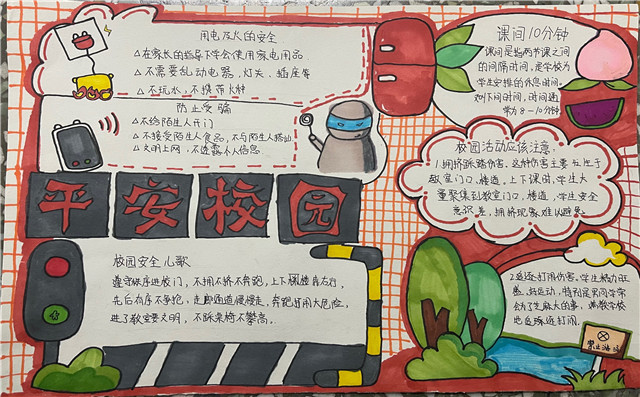 用电及火的安全
△在家长的指导下学会使用家电用品
△不需要乱动电器,灯头,插座等
△不玩水,不携带火种
防止受骗
△不给陌生人开门
△不接受陌生人食品,不与陌生人搭讪
△文明上网,不透露个人信息
平安校园
校园安全儿歌
遵守秩序进校门,不拥不挤不奔跑,上下楼梯靠右行,
先后有序不争抢,走廊通道慢慢走,奔跑打闹大危险,
进了教室要文明,不踩桌椅不攀高。
课间10分钟
课间是指两节课之间
的间隔时间,是学校为
学生安排的休息时间,
又叫下间时间,时间通
常为8-10分钟
校园活动应该注意:
1.拥挤踩踏伤害。这种伤害主要发生于
教室门口,楼道。上下课时,学生大
量聚集到教室门口,楼道,学生安全
意识差,拥挤现象难以避免
2.追逐打闹伤害,学生精力旺
盛,好运动,特别是课间学
会为了芝麻大的事,满教学校
地追逐打闹。
禁止游泳